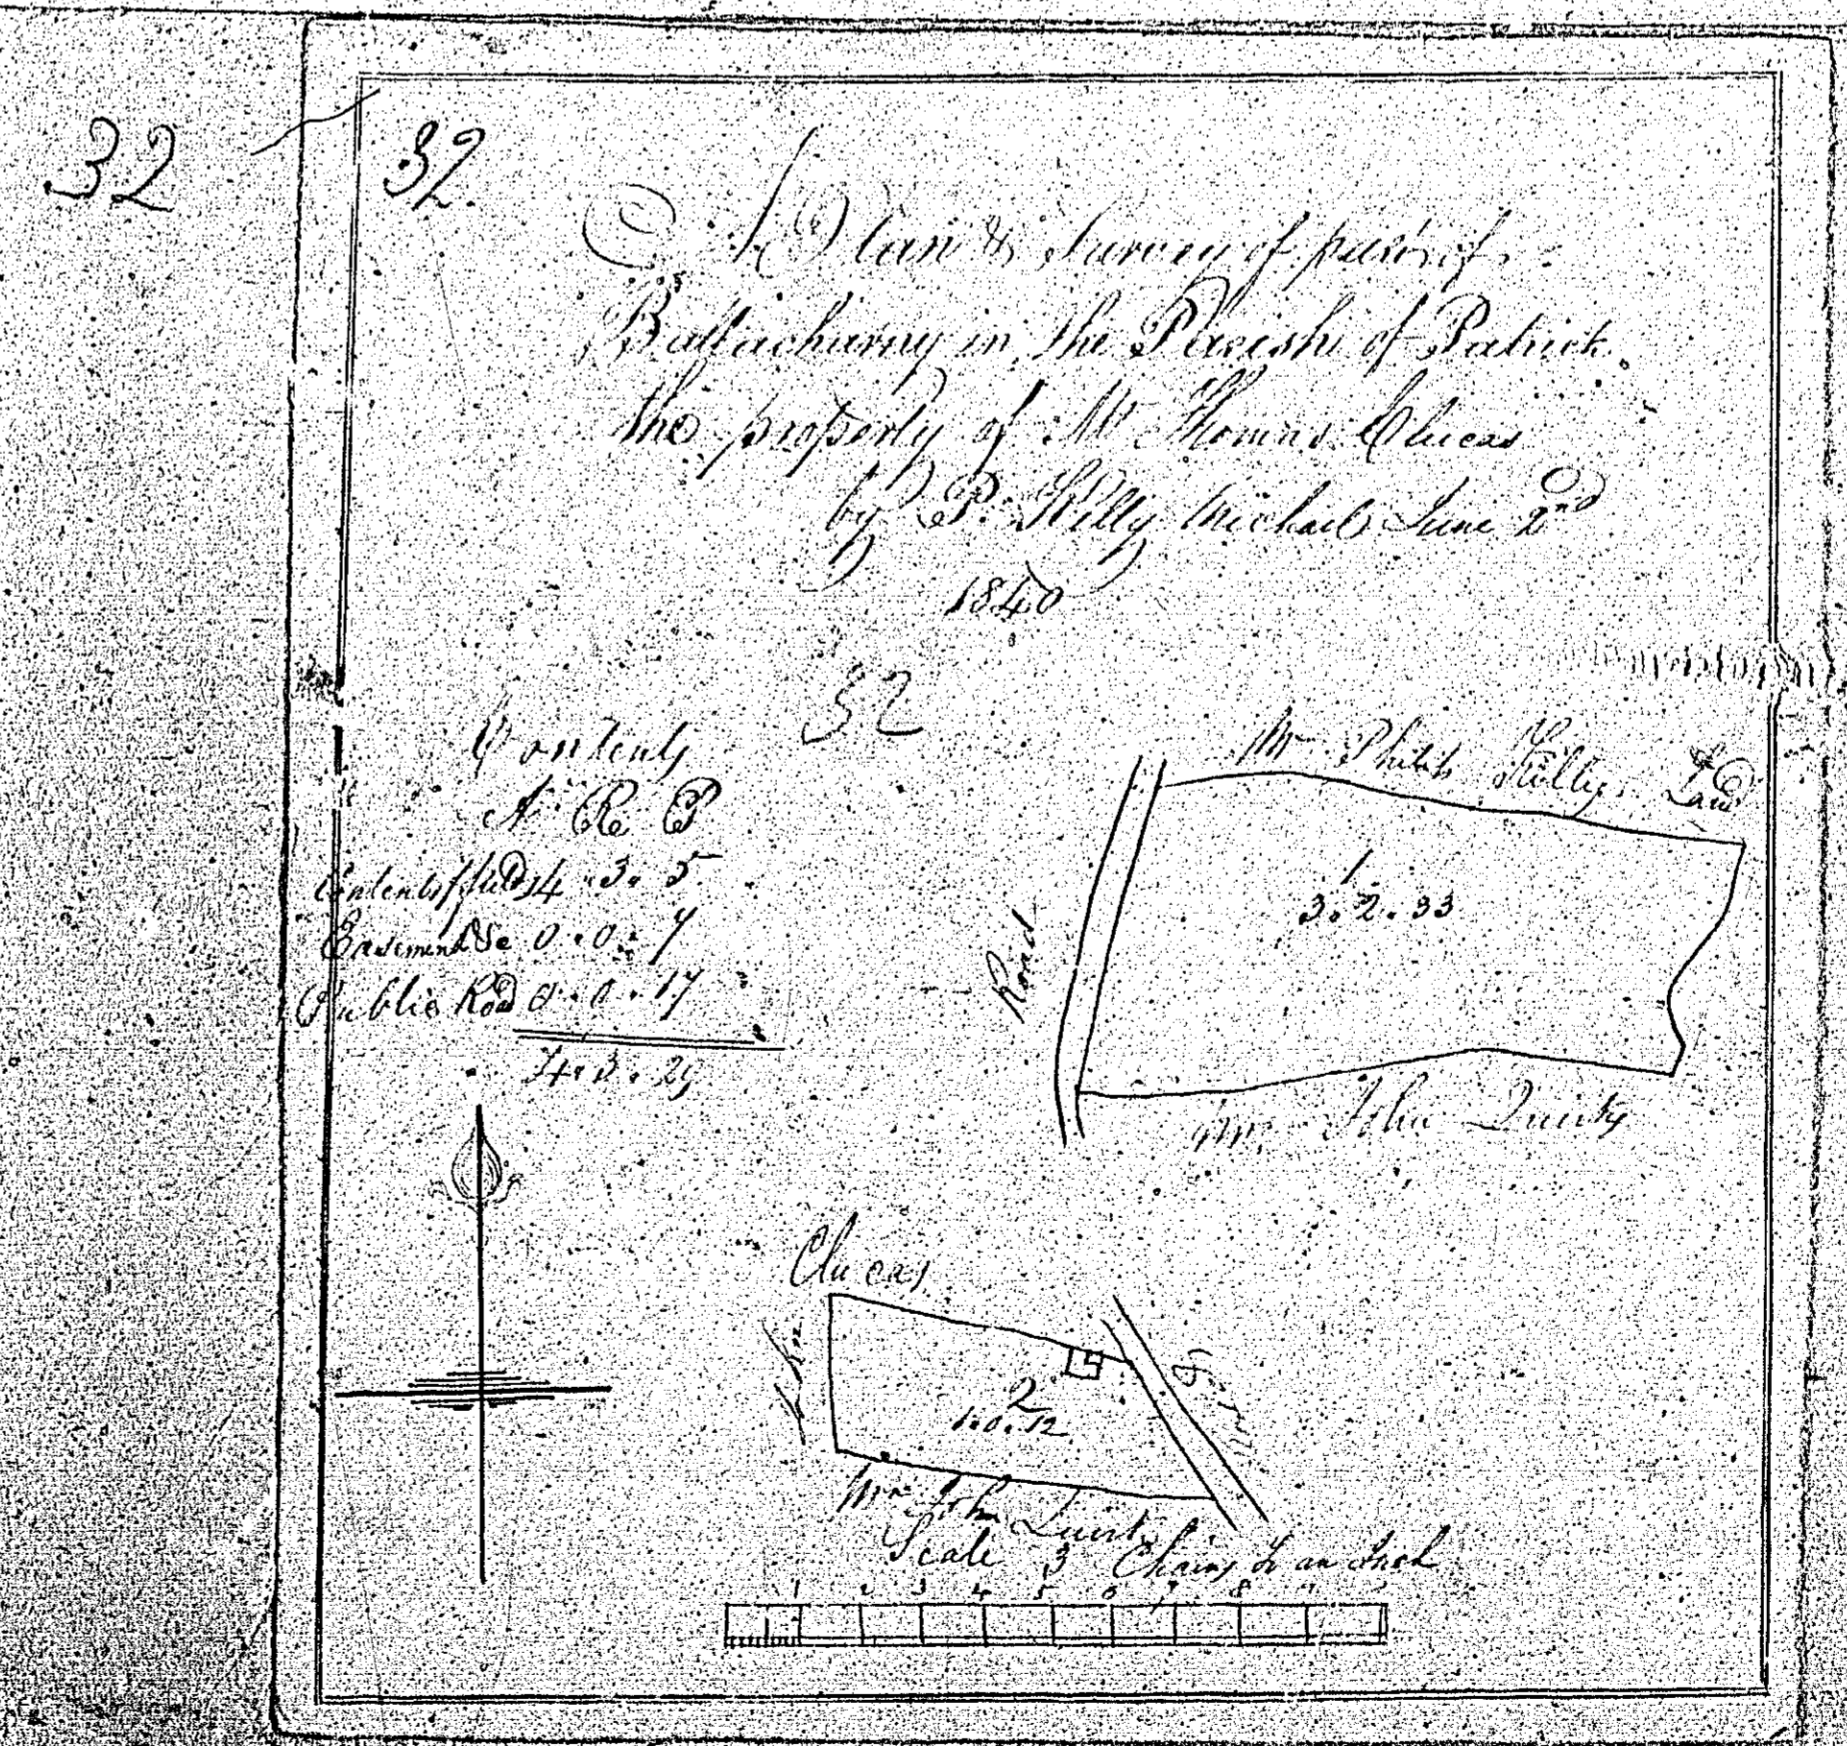 32
32
A Plan & Survey of part of
Ballacharny in the Parish of Patrick
the property of Mr Thomas Clucas
by P. Killy Michael June 2nd
1840
32
Contents
A R P
Contents of fields 4 . 3 . 5
Easement &c 0 . 0 . 7
Public Road 0 . 0 . 17
4 . 3 . 29
Mr Philip Killy Land
1
3 . 2 . 33
Road
Mr John Quirk
Clucas
2
1 . 0 . 12
Mr John Quirk
Scale 3 Chains to an Inch
1 2 3 4 5 6 7 8